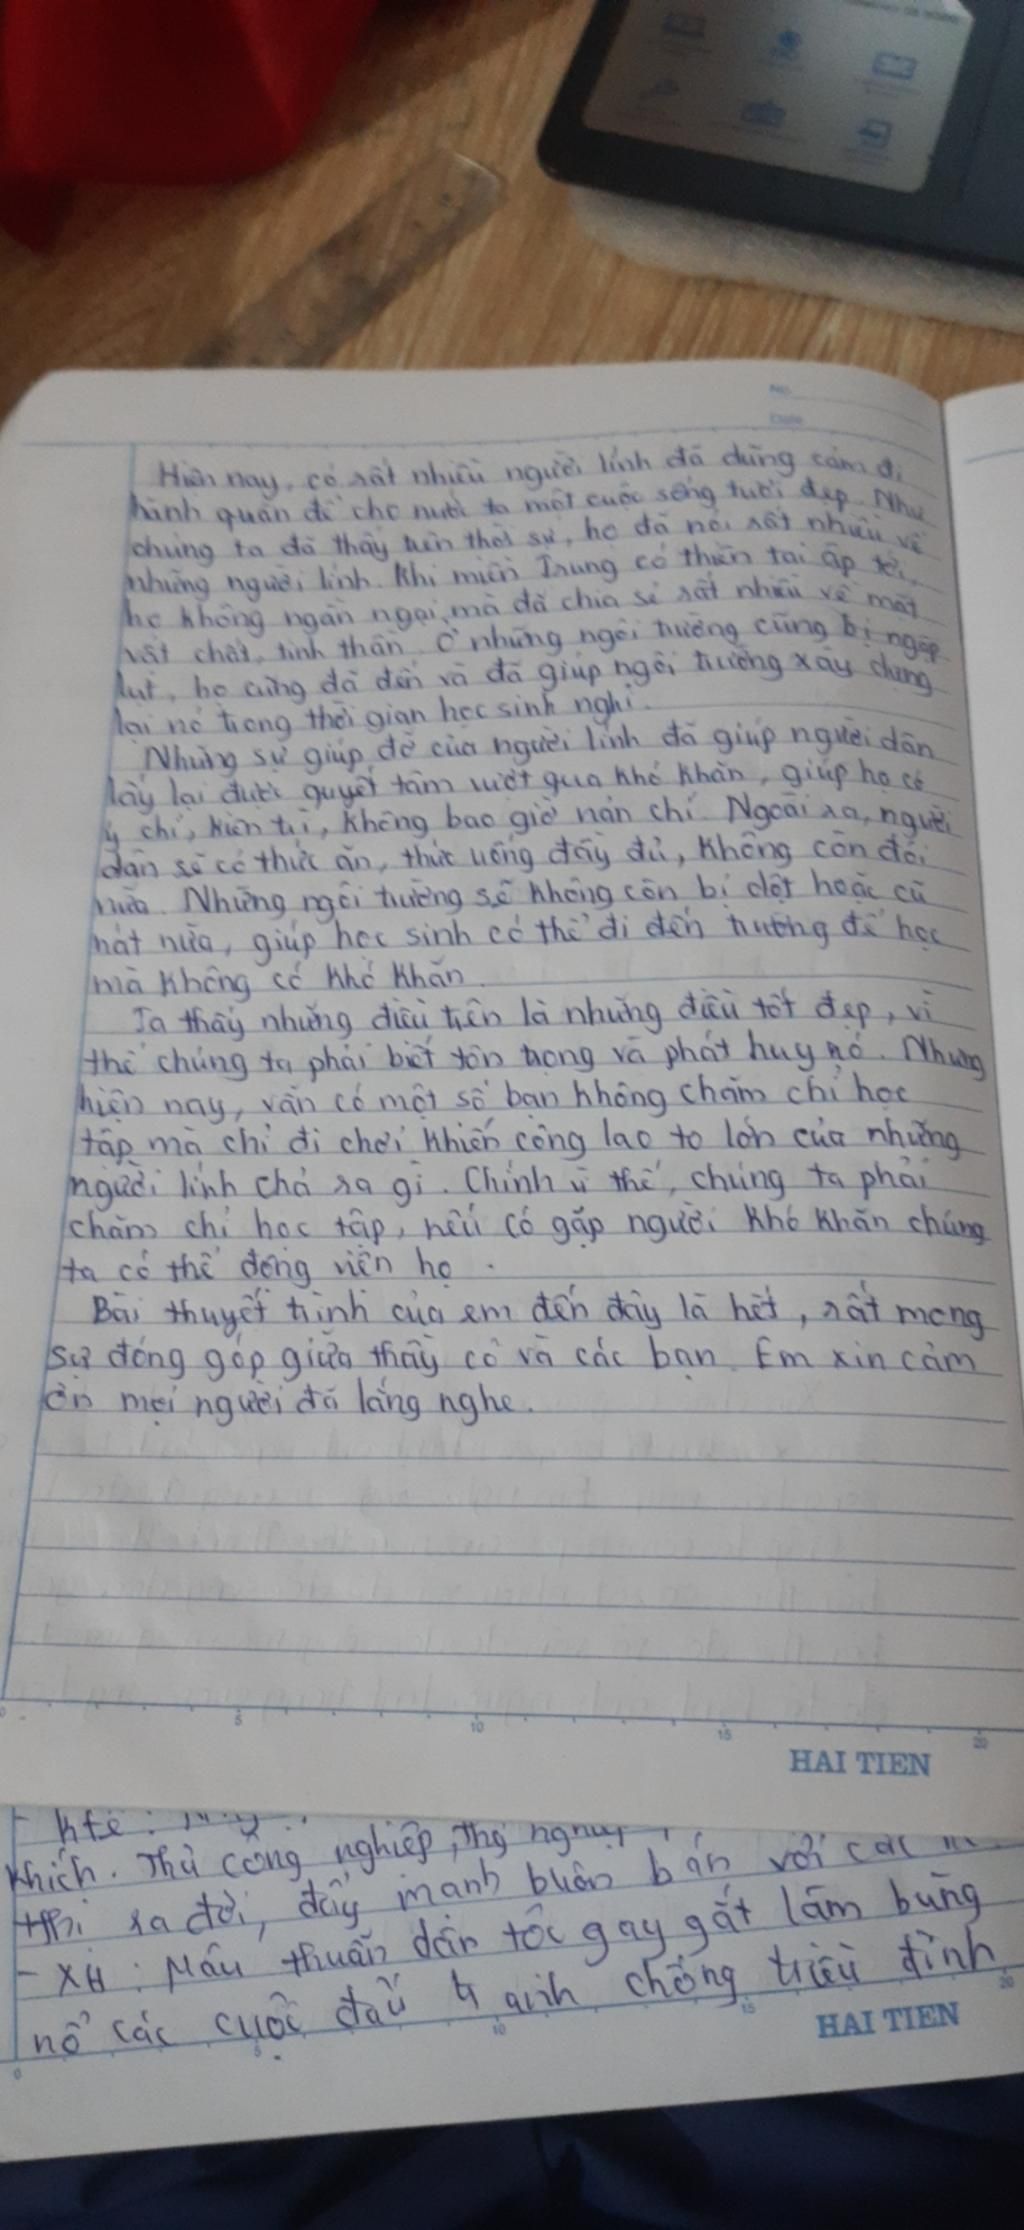 No.
Date
Hiện nay, có rất nhiều người lính đã dũng cảm đi
hành quân để cho nước ta một cuộc sống tươi đẹp. Như
chúng ta đã thấy trên thời sự, họ đã nói rất nhiều về
những người lính. Khi miền Trung có thiên tai ập tới,
họ không ngần ngại mà đã chia sẻ rất nhiều về mặt
vật chất, tinh thần. Ở những ngôi trường cũng bị ngập
lụt, họ cũng đã đến và đã giúp ngôi trường xây dựng
lại nó trong thời gian học sinh nghỉ.
Những sự giúp đỡ của người lính đã giúp người dân
lấy lại được quyết tâm vượt qua khó khăn, giúp họ có
ý chí, kiên trì, không bao giờ nản chí. Ngoài ra, người
dân sẽ có thức ăn, thức uống đầy đủ, không còn đói
nữa. Những ngôi trường sẽ không còn bị dột hoặc cũ
nát nữa, giúp học sinh có thể đi đến trường để học
mà không có khó khăn.
Ta thấy những điều trên là những điều tốt đẹp, vì
thế chúng ta phải biết tôn trọng và phát huy nó. Nhưng
hiện nay, vẫn có một số bạn không chăm chỉ học
tập mà chỉ đi chơi khiến công lao to lớn của những
người lính chả ra gì. Chính vì thế, chúng ta phải
chăm chỉ học tập, nếu có gặp người khó khăn chúng
ta có thể động viên họ.
Bài thuyết trình của em đến đây là hết, rất mong
sự đóng góp giữa thầy cô và các bạn. Em xin cảm
ơn mọi người đã lắng nghe.
0 5 10 15 20
HAI TIEN
- Kte:
khích. Thủ công nghiệp,
ra đời, đẩy mạnh buôn bán với các
- XH: Mâu thuẫn dân tộc gay gắt làm bùng
nổ các cuộc đấu tranh chống triều đình
0 5 10 15 20
HAI TIEN